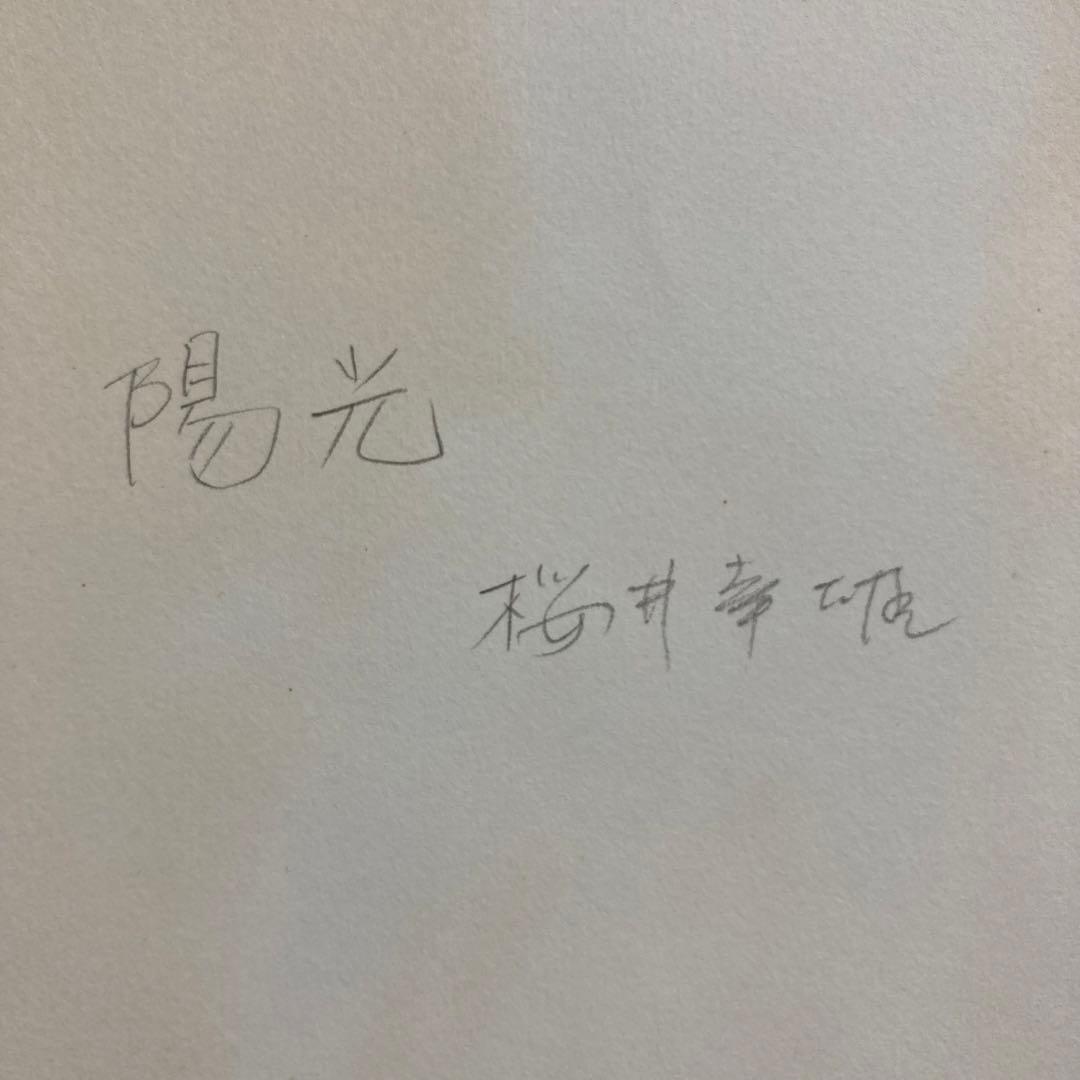 陽光
桜井幸雄